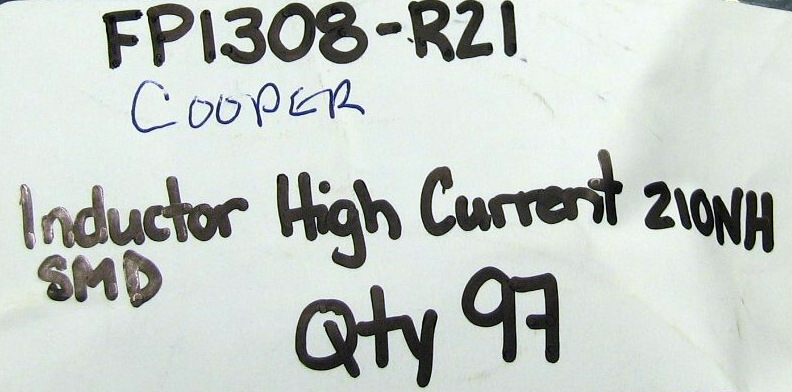 FP1308-R21
COOPER
Inductor High Current 210NH
SMD
Qty 97